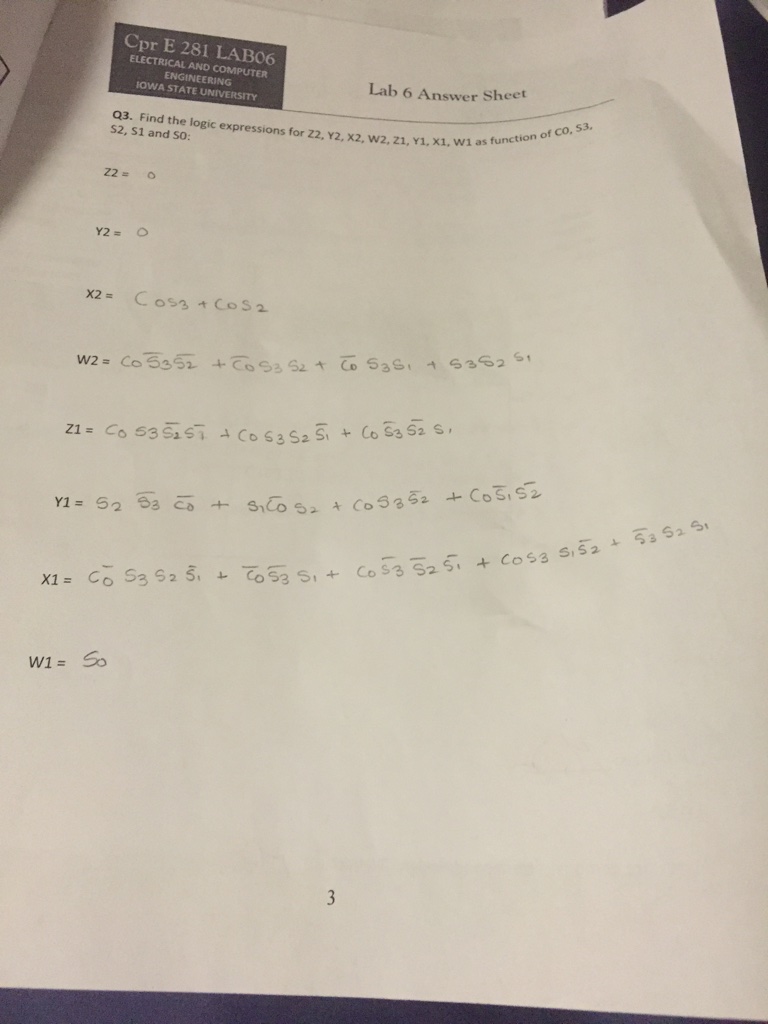 Cpr E 281 LAB06
ELECTRICAL AND COMPUTER
ENGINEERING
IOWA STATE UNIVERSITY
Lab 6 Answer Sheet
Q3. Find the logic expressions for Z2, Y2, X2, W2, Z1, Y1, X1, W1 as function of C0, S3,
S2, S1 and S0:
Z2 = 0
Y2 = 0
X2 = C0S3 + C0S2
W2 = C0S̅3̅S̅2̅ + C̅0̅S3S2 + C̅0̅ S3S1 + S3S2S1
Z1 = C0 S3S̅2̅S̅1̅ + C0S3S2S̅1̅ + C0S̅3̅S̅2̅S1
Y1 = S2 S̅3̅ C̅0̅ + S1C̅0̅S2 + C0S3S̅2̅ + C0S̅1̅S̅2̅
X1 = C̅0̅ S3S2S̅1̅ + C̅0̅S̅3̅S1 + C0S̅3̅S̅2̅S̅1̅ + C0S3 S1S̅2̅ + S̅3̅S2S1
W1 = S0
3